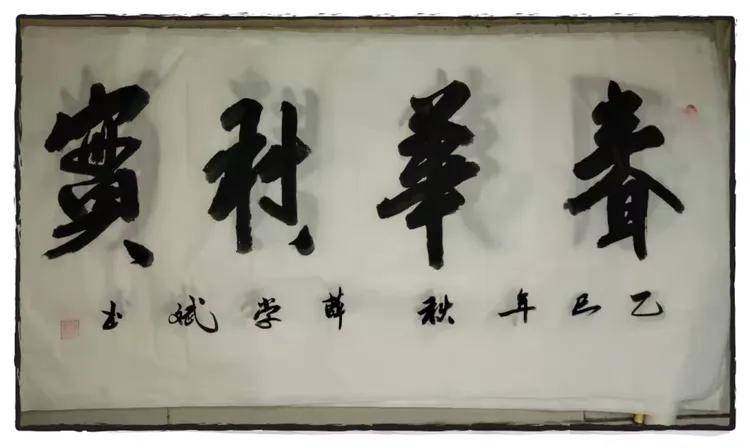 春華秋實
乙巳年秋薛学斌书